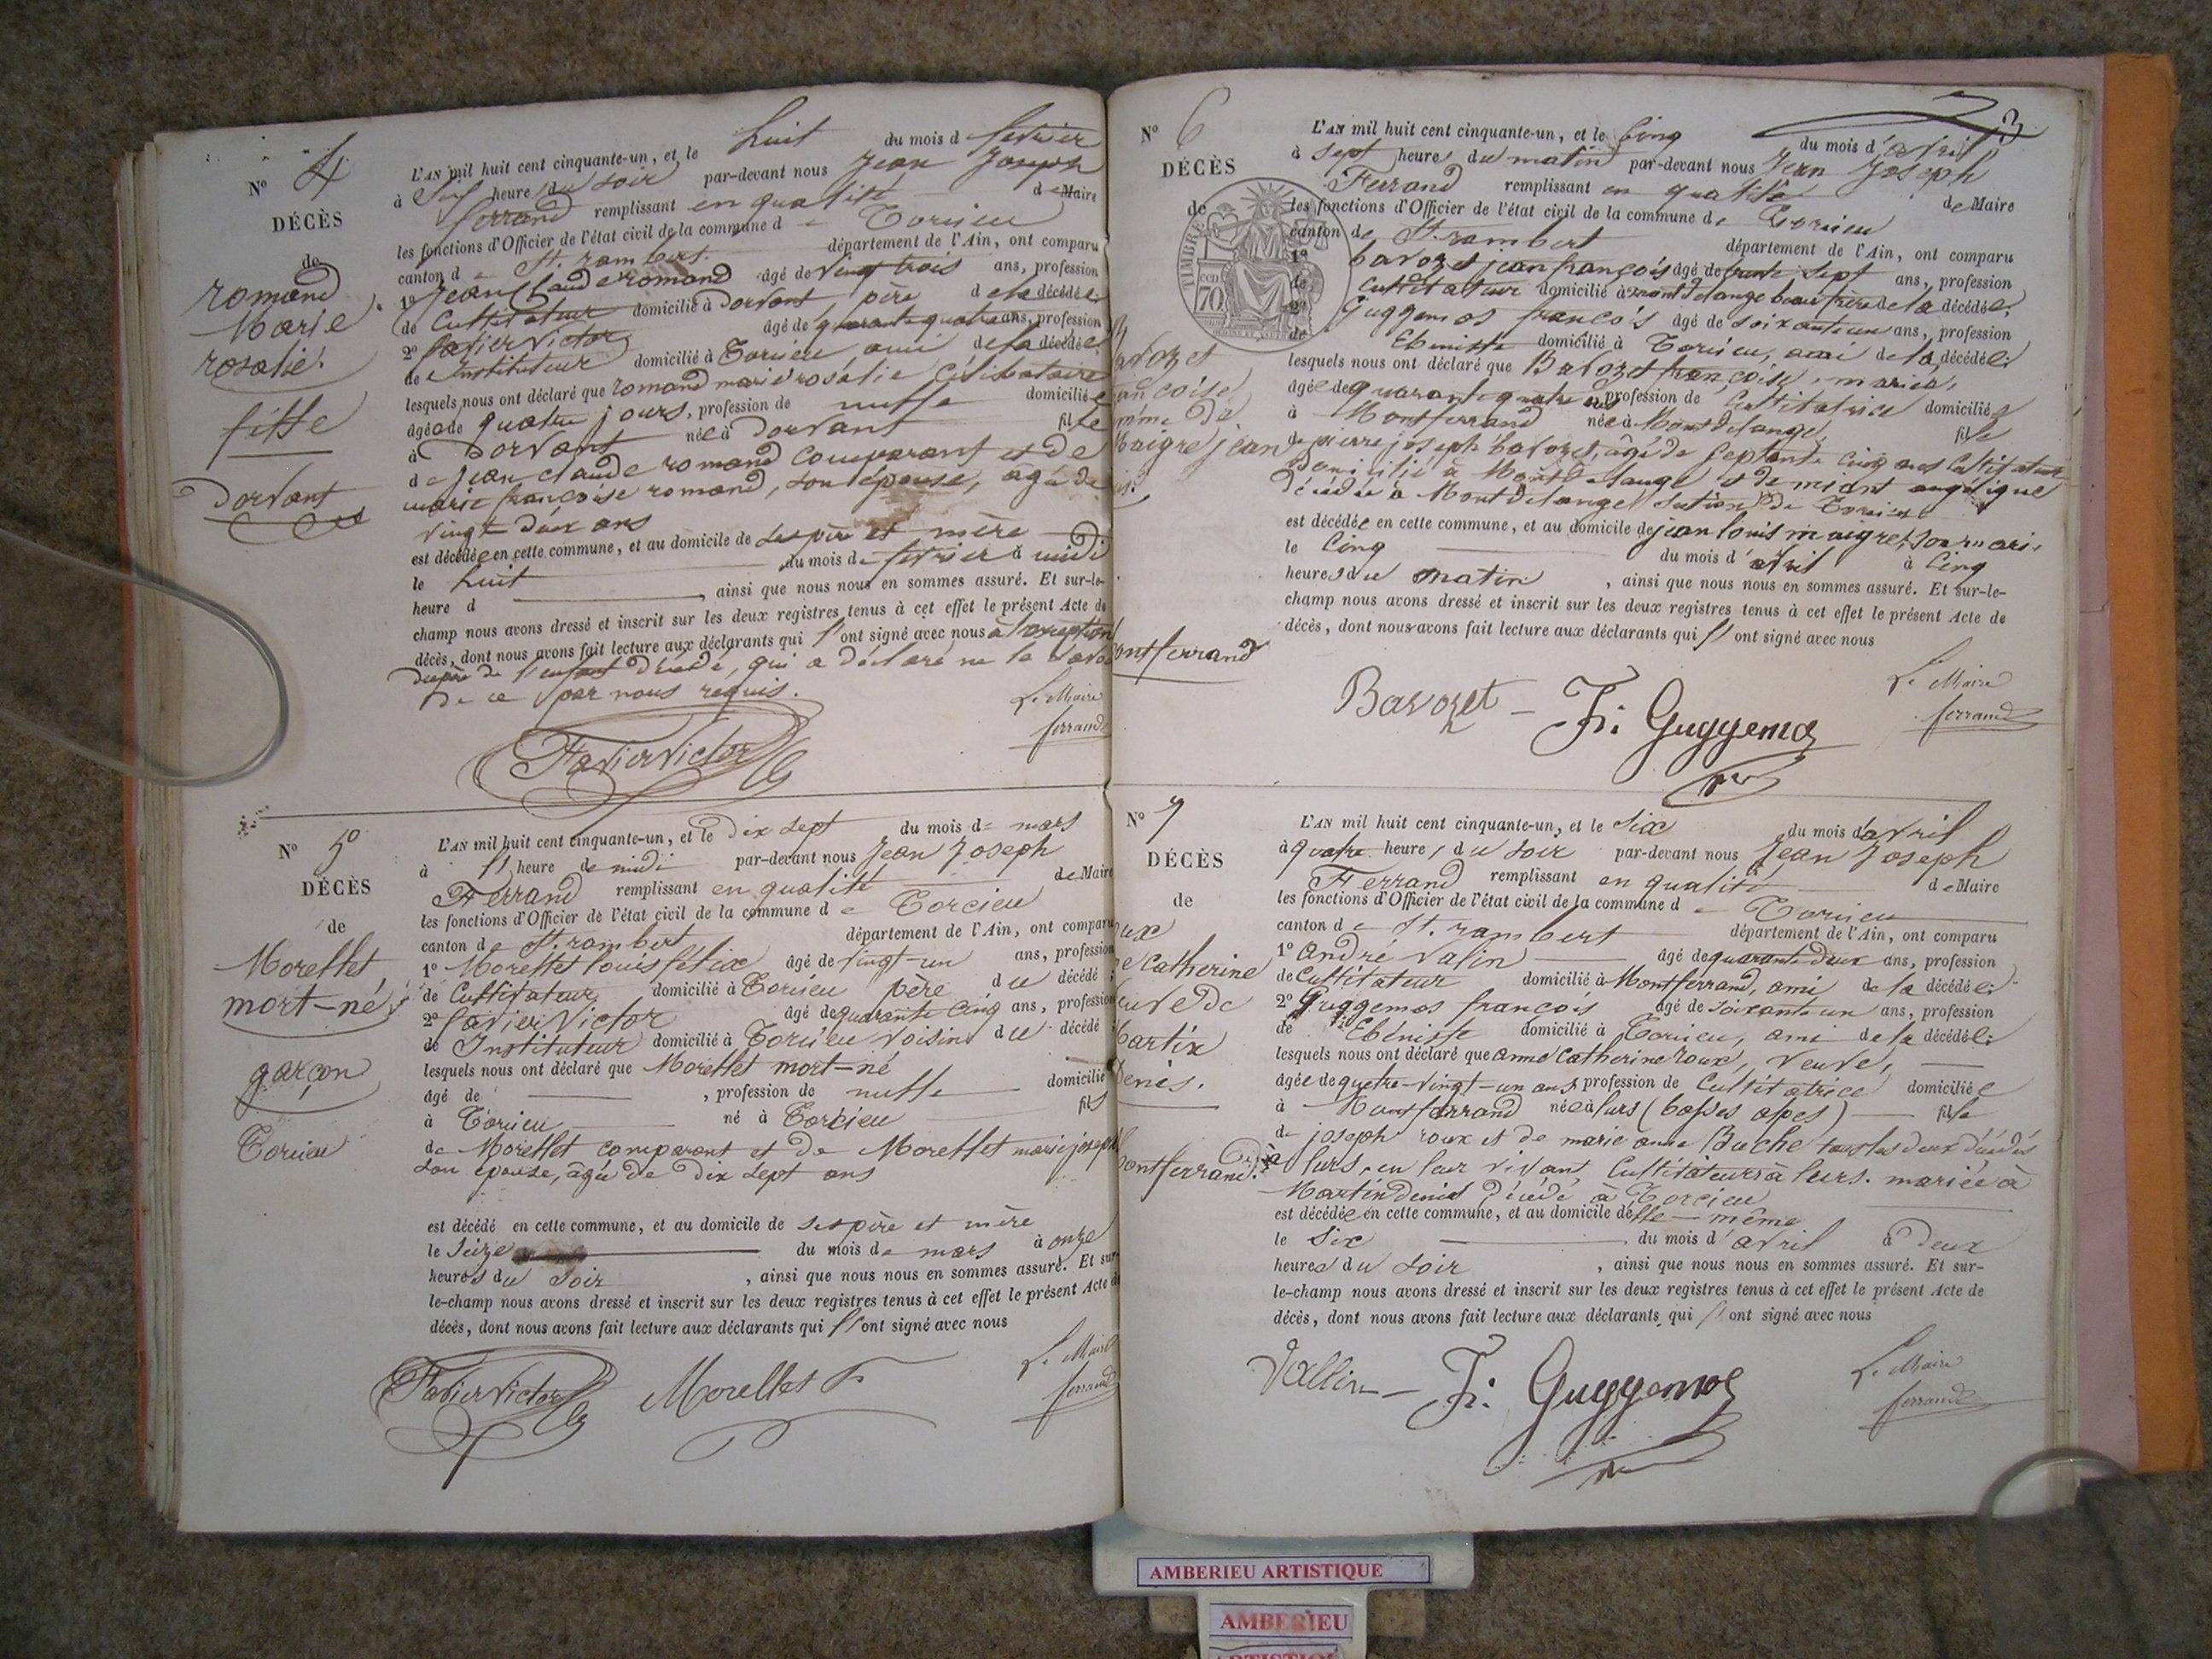 N° 4
DÉCÈS
de
romand
Marie
rosalie.
fille
Dorvant
L'AN mil huit cent cinquante-un, et le huit du mois d fevrier
à Six heure du soir par-devant nous Jean Joseph
ferrand remplissant en qualité de Maire
les fonctions d'Officier de l'état civil de la commune de Torcieu
canton de St. rambert. département de l'Ain, ont comparu
1° Jean Claude romand âgé de vingt trois ans, profession
de Cultivateur domicilié à Dorvant, père de la décédée;
2° favier Victor âgé de quarante quatre ans, profession
de Instituteur domicilié à Torcieu, ami de la décédée
lesquels nous ont déclaré que romand marie rosalie Célibataire
âgée de quatre jours, profession de nulle domiciliée
à Dorvant née à Dorvant fille
de Jean Claude romand comparant et de
marie françoise romand, son épouse, âgée de
vingt-deux ans
est décédée en cette commune, et au domicile de ses père et mère
le huit du mois de fevrier à midi
heure d , ainsi que nous nous en sommes assuré. Et sur-le-
champ nous avons dressé et inscrit sur les deux registres tenus à cet effet le présent Acte de
décès, dont nous avons fait lecture aux déclarants qui l'ont signé avec nous à l'exception
de l'enfant décédé, qui a déclaré ne le savoir
de ce par nous requis.
Le Maire
ferrand
Favier Victor
N° 5
DÉCÈS
de
Morellet
mort-né
garçon
Torcieu
L'AN mil huit cent cinquante-un, et le dix sept du mois de mars
à heure de midi par-devant nous Jean Joseph
Ferrand remplissant en qualité de Maire
les fonctions d'Officier de l'état civil de la commune de Torcieu
canton de St. rambert département de l'Ain, ont comparu
1° Morellet louis félix âgé de vingt-un ans, profession
de Cultivateur domicilié à Torcieu père du décédé;
2° favier Victor âgé de quarante cinq ans, profession
de Instituteur domicilié à Torcieu voisin du décédé
lesquels nous ont déclaré que Morellet mort-né
âgé de , profession de nulle domicilié
à Torcieu né à Torcieu fils
de Morellet comparant et de Morellet marie joseph
son épouse, âgée de dix sept ans
est décédé en cette commune, et au domicile de ses père et mère
le Seize du mois de mars à onze
heures du soir , ainsi que nous nous en sommes assuré. Et sur
le-champ nous avons dressé et inscrit sur les deux registres tenus à cet effet le présent Acte de
décès, dont nous avons fait lecture aux déclarants qui l'ont signé avec nous
Favier Victor Morellet
Le Maire
ferrand
3
N° 6
DÉCÈS
de
TIMBRE
70
avozet
ançoise
mme de
Maigre jean
ontferrand
L'AN mil huit cent cinquante-un, et le Cinq du mois d'avril
à sept heures du matin par-devant nous Jean Joseph
Ferrand remplissant en qualité de Maire
les fonctions d'Officier de l'état civil de la commune de Torcieu
canton de St. rambert département de l'Ain, ont comparu
1° bavozet jean françois âgé de trente sept ans, profession
de Cultivateur domicilié à montdelange beau frère de la décédée;
2° Guggemos françois âgé de soixante un ans, profession
de Ebeniste domicilié à Torcieu, ami de la décédée;
lesquels nous ont déclaré que Bavozet françoise, mariée,
âgée de quarante quatre ans profession de Cultivatrice domiciliée
à Montferrand née à Montdelange fille
de pierre joseph bavozet, âgé de Septante Cinq ans Cultivateur
domicilié à Montdelange et de miant angélique
décédée à Montdelange Section de Torcieu
est décédée en cette commune, et au domicile de jean louis maigre, son mari,
le Cinq du mois d'avril à Cinq
heures du matin , ainsi que nous nous en sommes assuré. Et sur-le-
champ nous avons dressé et inscrit sur les deux registres tenus à cet effet le présent Acte de
décès, dont nous avons fait lecture aux déclarants qui l'ont signé avec nous
Bavozet Fr: Guggemos
Le Maire
ferrand
N° 7
DÉCÈS
de
oux
e Catherine
euve de
Martin
Denis.
Montferrand.
L'AN mil huit cent cinquante-un, et le Six du mois d'avril
à quatre heures du soir par-devant nous Jean Joseph
Ferrand remplissant en qualité de Maire
les fonctions d'Officier de l'état civil de la commune de Torcieu
canton de St. rambert département de l'Ain, ont comparu
1° André Valin âgé de quarante deux ans, profession
de Cultivateur domicilié à Montferrand, ami de la décédée;
2° Guggemos françois âgé de soixante un ans, profession
de Ebéniste domicilié à Torcieu, ami de la décédée;
lesquels nous ont déclaré que anne Catherine roux, veuve,
âgée de quatre-vingt-un ans profession de Cultivatrice domiciliée
à Montferrand née à lurs (basses alpes) fille
de joseph roux et de marie anne Buche tous les deux décédés
à lurs, en leur vivant Cultivateurs à lurs. mariée à
Martin denis décédé à Torcieu
est décédée en cette commune, et au domicile d'elle-même
le Six du mois d'avril à Deux
heures du soir , ainsi que nous nous en sommes assuré. Et sur-
le-champ nous avons dressé et inscrit sur les deux registres tenus à cet effet le présent Acte de
décès, dont nous avons fait lecture aux déclarants qui l'ont signé avec nous
Vallin Fr: Guggemos
Le Maire
ferrand
AMBERIEU ARTISTIQUE
AMBERIEU
ARTISTIQUE